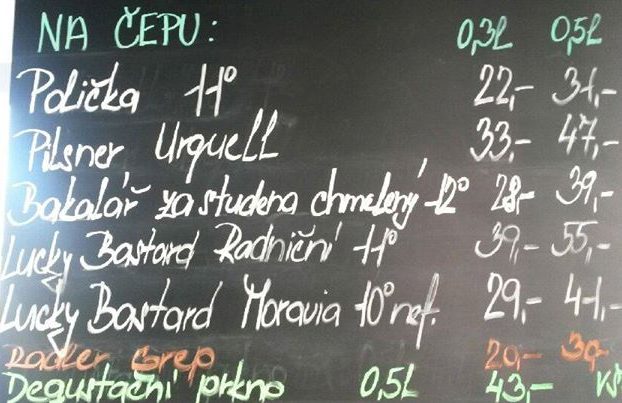 NA ČEPU: 0,3l 0,5l
Polička 11° 22,- 31,-
Pilsner Urquell 33,- 47,-
Bakalář za studena chmelený 12° 28,- 39,-
Lucky Bastard Radniční 11° 39,- 55,-
Lucky Bastard Moravia 10° nef. 29,- 41,-
Radler Grep 20,-
Degustační prkno 0,5l 43,-